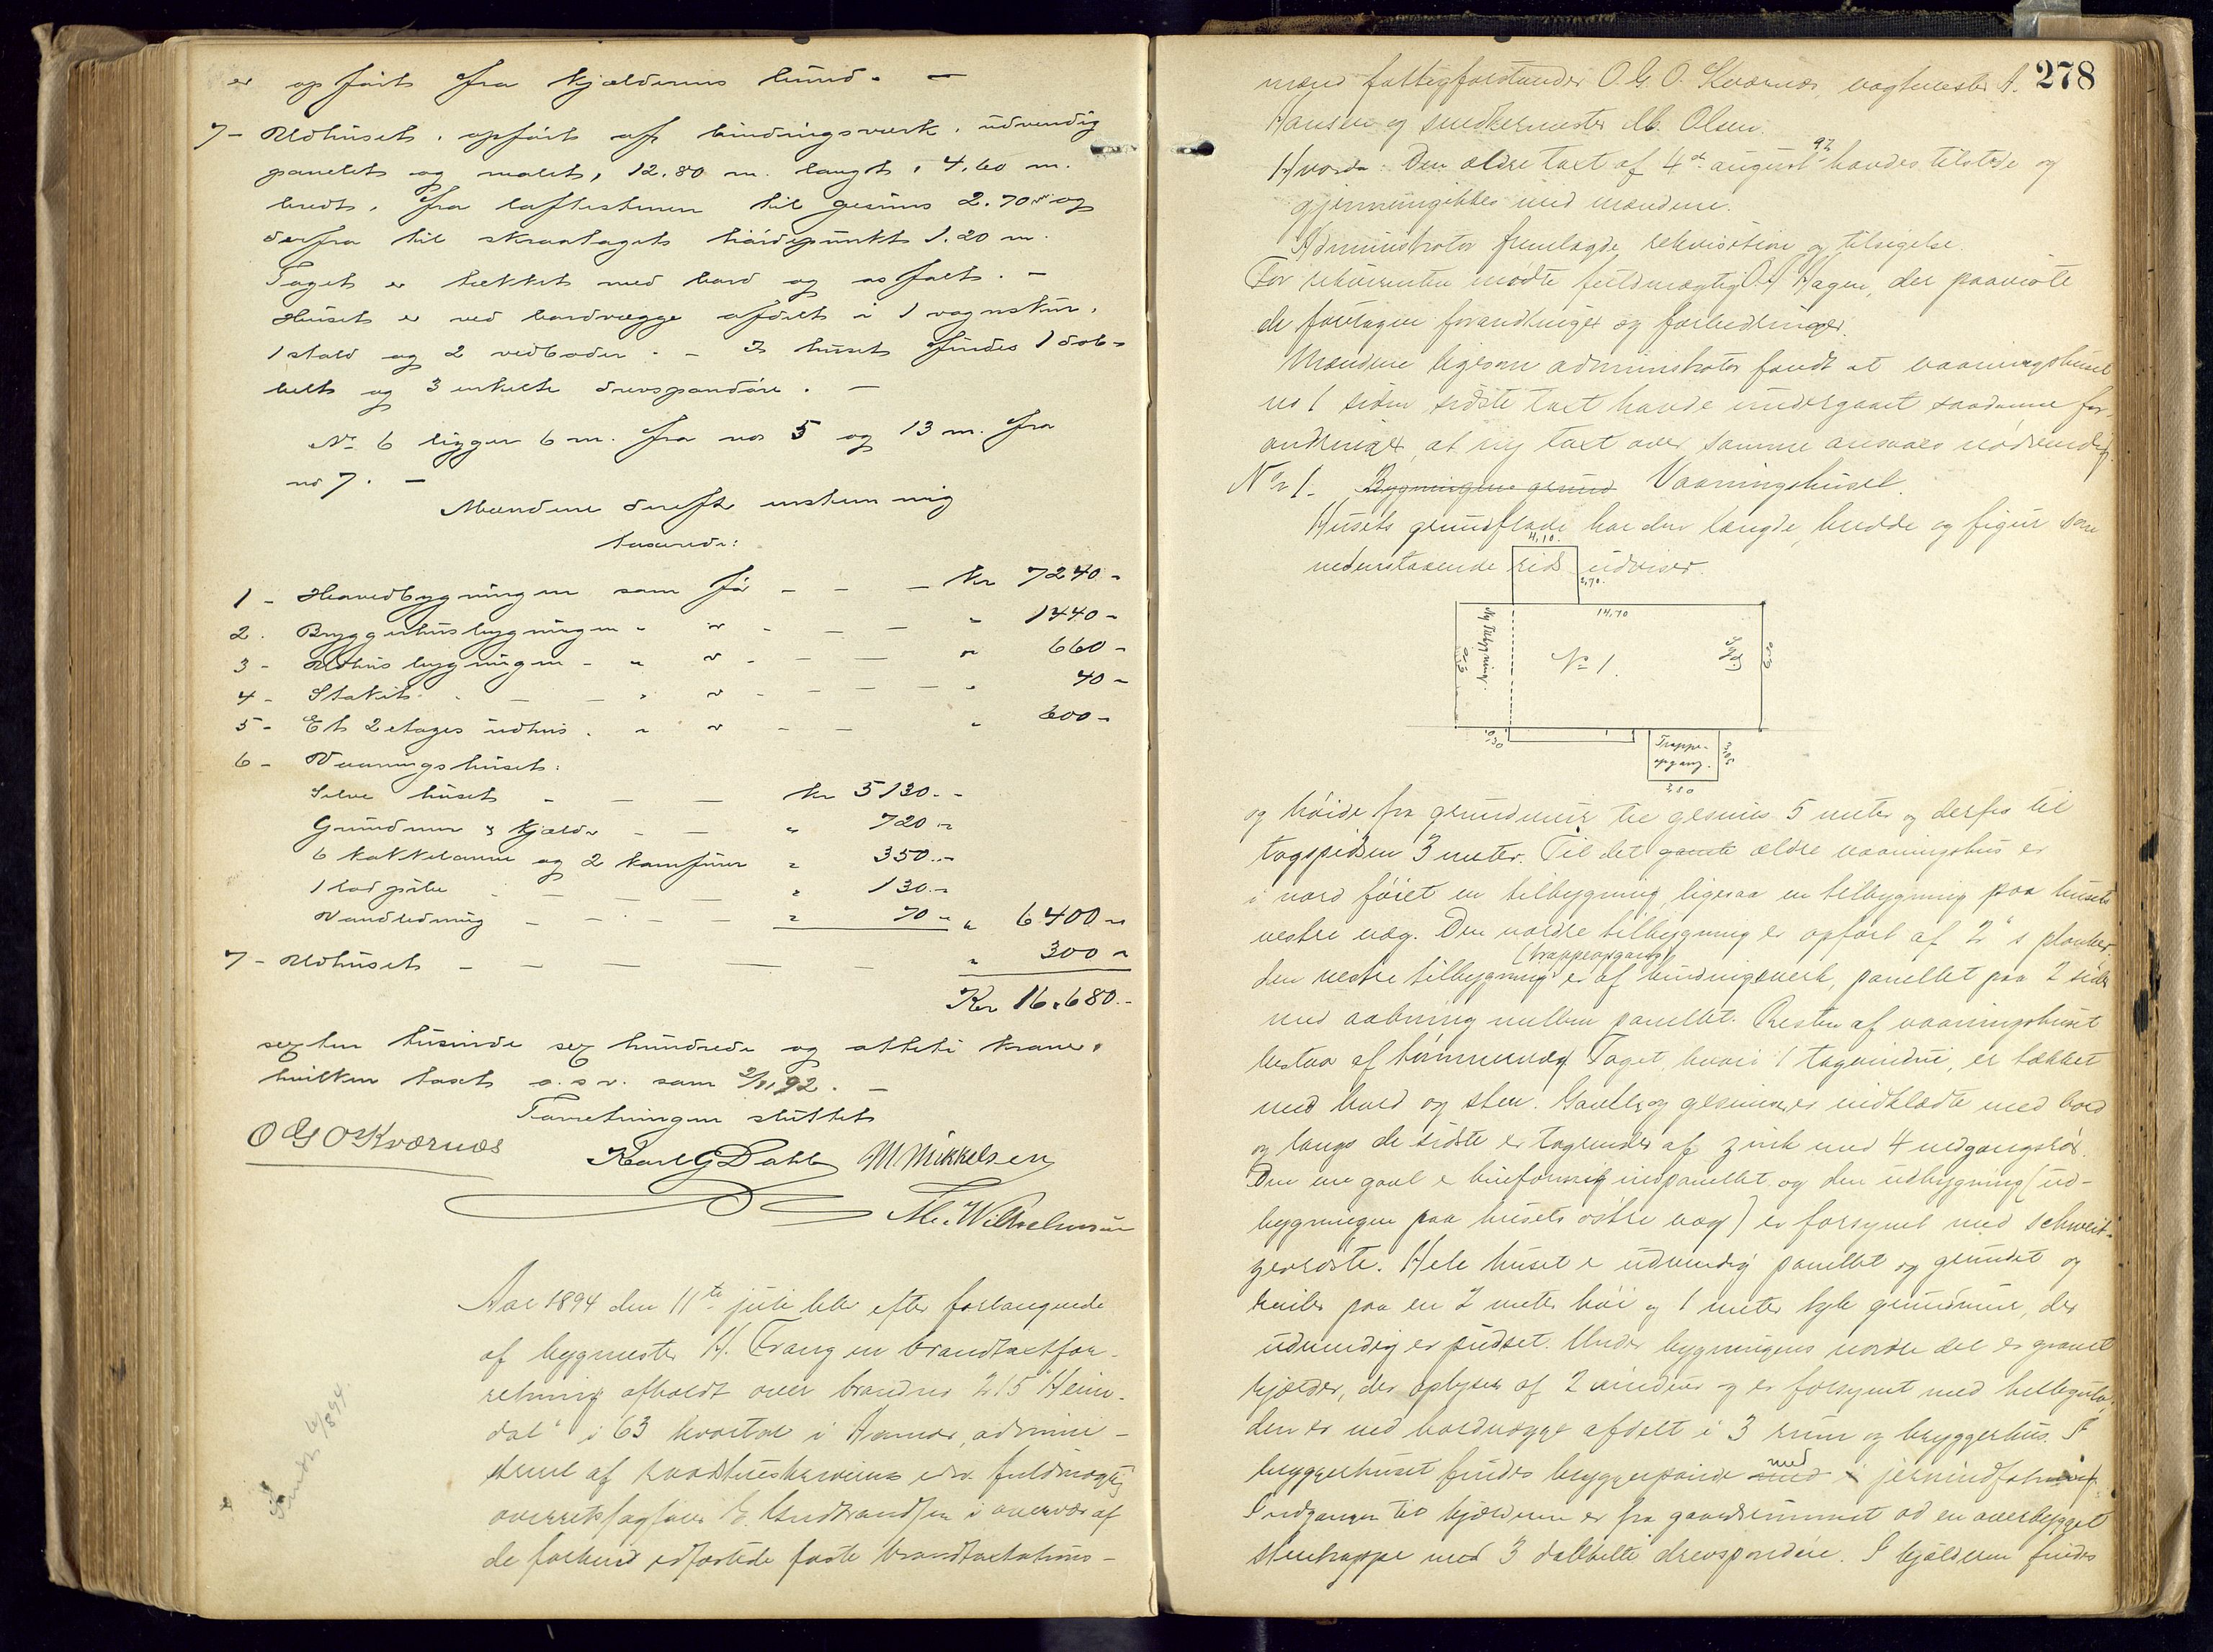 er opført fra kjælderens bund. —
7 – Udhuset, opført af bindingsverk, udvendig
panelet og malet, 12.80 m. langt, 4.60 m.
bredt, fra loftestenen til gesims 2.70 m og
derfra til skraatagets høidepunkt 1.20 m.
Taget er tækket med bord og asfalt. —
Huset er ved bordvægge afdelt i 1 vognskur,
1 stald og 2 vedboder. – I huset findes 1 dob-
belt og 3 enkelte drevspandøre. —
No 6 ligger 6 m. fra no 5 og 13 m. fra
no 7. —
Mændene derefter enstemmig
taxerede:
1 – Hovedbygningen som før – – – Kr 7240 –
2. Bryggerhusbygningen " " – – – " 1440 –
3 – Udhusbygningen – " " – – – " 660 –
4 – Stakit – – – " " – – – " 40 –
5 – Et 2 etages udhus. " " – – – " 600 –
6 – Vaaningshuset:
Selve huset – – – Kr 5130. –
Grundmur & kjælder – – " 720 –
6 kakkelovne og 2 komfurer " 350. –
1 lod pibe – – – " 130. –
Vandledning – – – – " 70 – " 6400 –
7 – Udhuset – – – — — " 300 –
Kr 16.680. –
sexten tusinde sex hundrede og otteti kroner,
hvilken taxt o. s. v. som 2/11 92. —
Forretningen sluttet
O G O Kværnæs Karl G Dahl M. Mikkelsen
Th. Wilhelmsen
Aar 1894 den 11te juli blev efter forlangende
af bygmester H. Trang en brandtaxtfor-
retning afholdt over brandno 215 "Heim-
dal" i 63 kvartal i Hamar, admini-
streret af raadstueskriverens edsv. fuldmægtig
overretssagfører E. Gudbrandsen i overvær af
de forhen edfæstede faste brandtaxtations-
278
mænd fattigforstander O. G. O. Kværnæs, vagtmester A.
Hansen og snedkermester M. Olsen.
Hvorda: Den ældre taxt af 4de august 92 havdes tilstede og
gjennemgikkes med mændene.
Administrator fremlagde rekvisition og tilsigelse.
For rekvirenten mødte fuldmægtig O. A. Hagen, der paaviste
de foretagne forandringer og forbedringer.
Mændene ligesom administrator fandt at vaaningshuset
no 1 siden sidste taxt havde undergaaet saadanne for-
andringer, at ny taxt over samme ansaaes nødvendig.
No 1. Bygningens grund Vaaningshuset.
Husets grundflade har den længde, bredde og figur som
nedenstaaende rids udviser.
4,10.
2,70.
14,70
Ny Tilbygning.
No 1.
Syd
0,30
Trappe-
opgang.
3,50
og høide fra grundmur til gesims 5 meter og derfra til
tagspidsen 3 meter. Til det gamle ældre vaaningshus er
i nord føiet en tilbygning, ligesaa en tilbygning paa husets
vestre væg. Den nordre tilbygning er opført af 2" s planker,
(trappeopgang)
den vestre tilbygning er af bindingsverk, panellet paa 2 sider
med aabning mellem panellet. Resten af vaaningshuset
bestaar af tømmervæg. Taget, hvori 1 tagvindu, er tækket
med bord og sten. Gavle og gesimser er indklædte med bord
og langs de sidste er tagrender af zink med 4 nedgangsrør.
Den ene gavl er bueformig indpanellet og den udbygning (ud-
bygningen paa husets østre væg) er forsynet med schweit-
zerrøste. Hele huset er udvendig panellet og grundet og
hviler paa en 2 meter høi og 1 meter tyk grundmur, der
udvendig er pudset. Under bygningens nordre del er gravet
kjælder, der oplyses af 2 vinduer og er forsynet med hellegulv,
den er ved bordvægge afdelt i 3 rum og bryggerhus. I
bryggerhuset findes bryggerpande med med jernindfatning.
Indgangen til kjælderen er fra gaardsrummet ad en overbygget
stentrappe med 3 dobbelte drevspandøre. I kjælderen findes